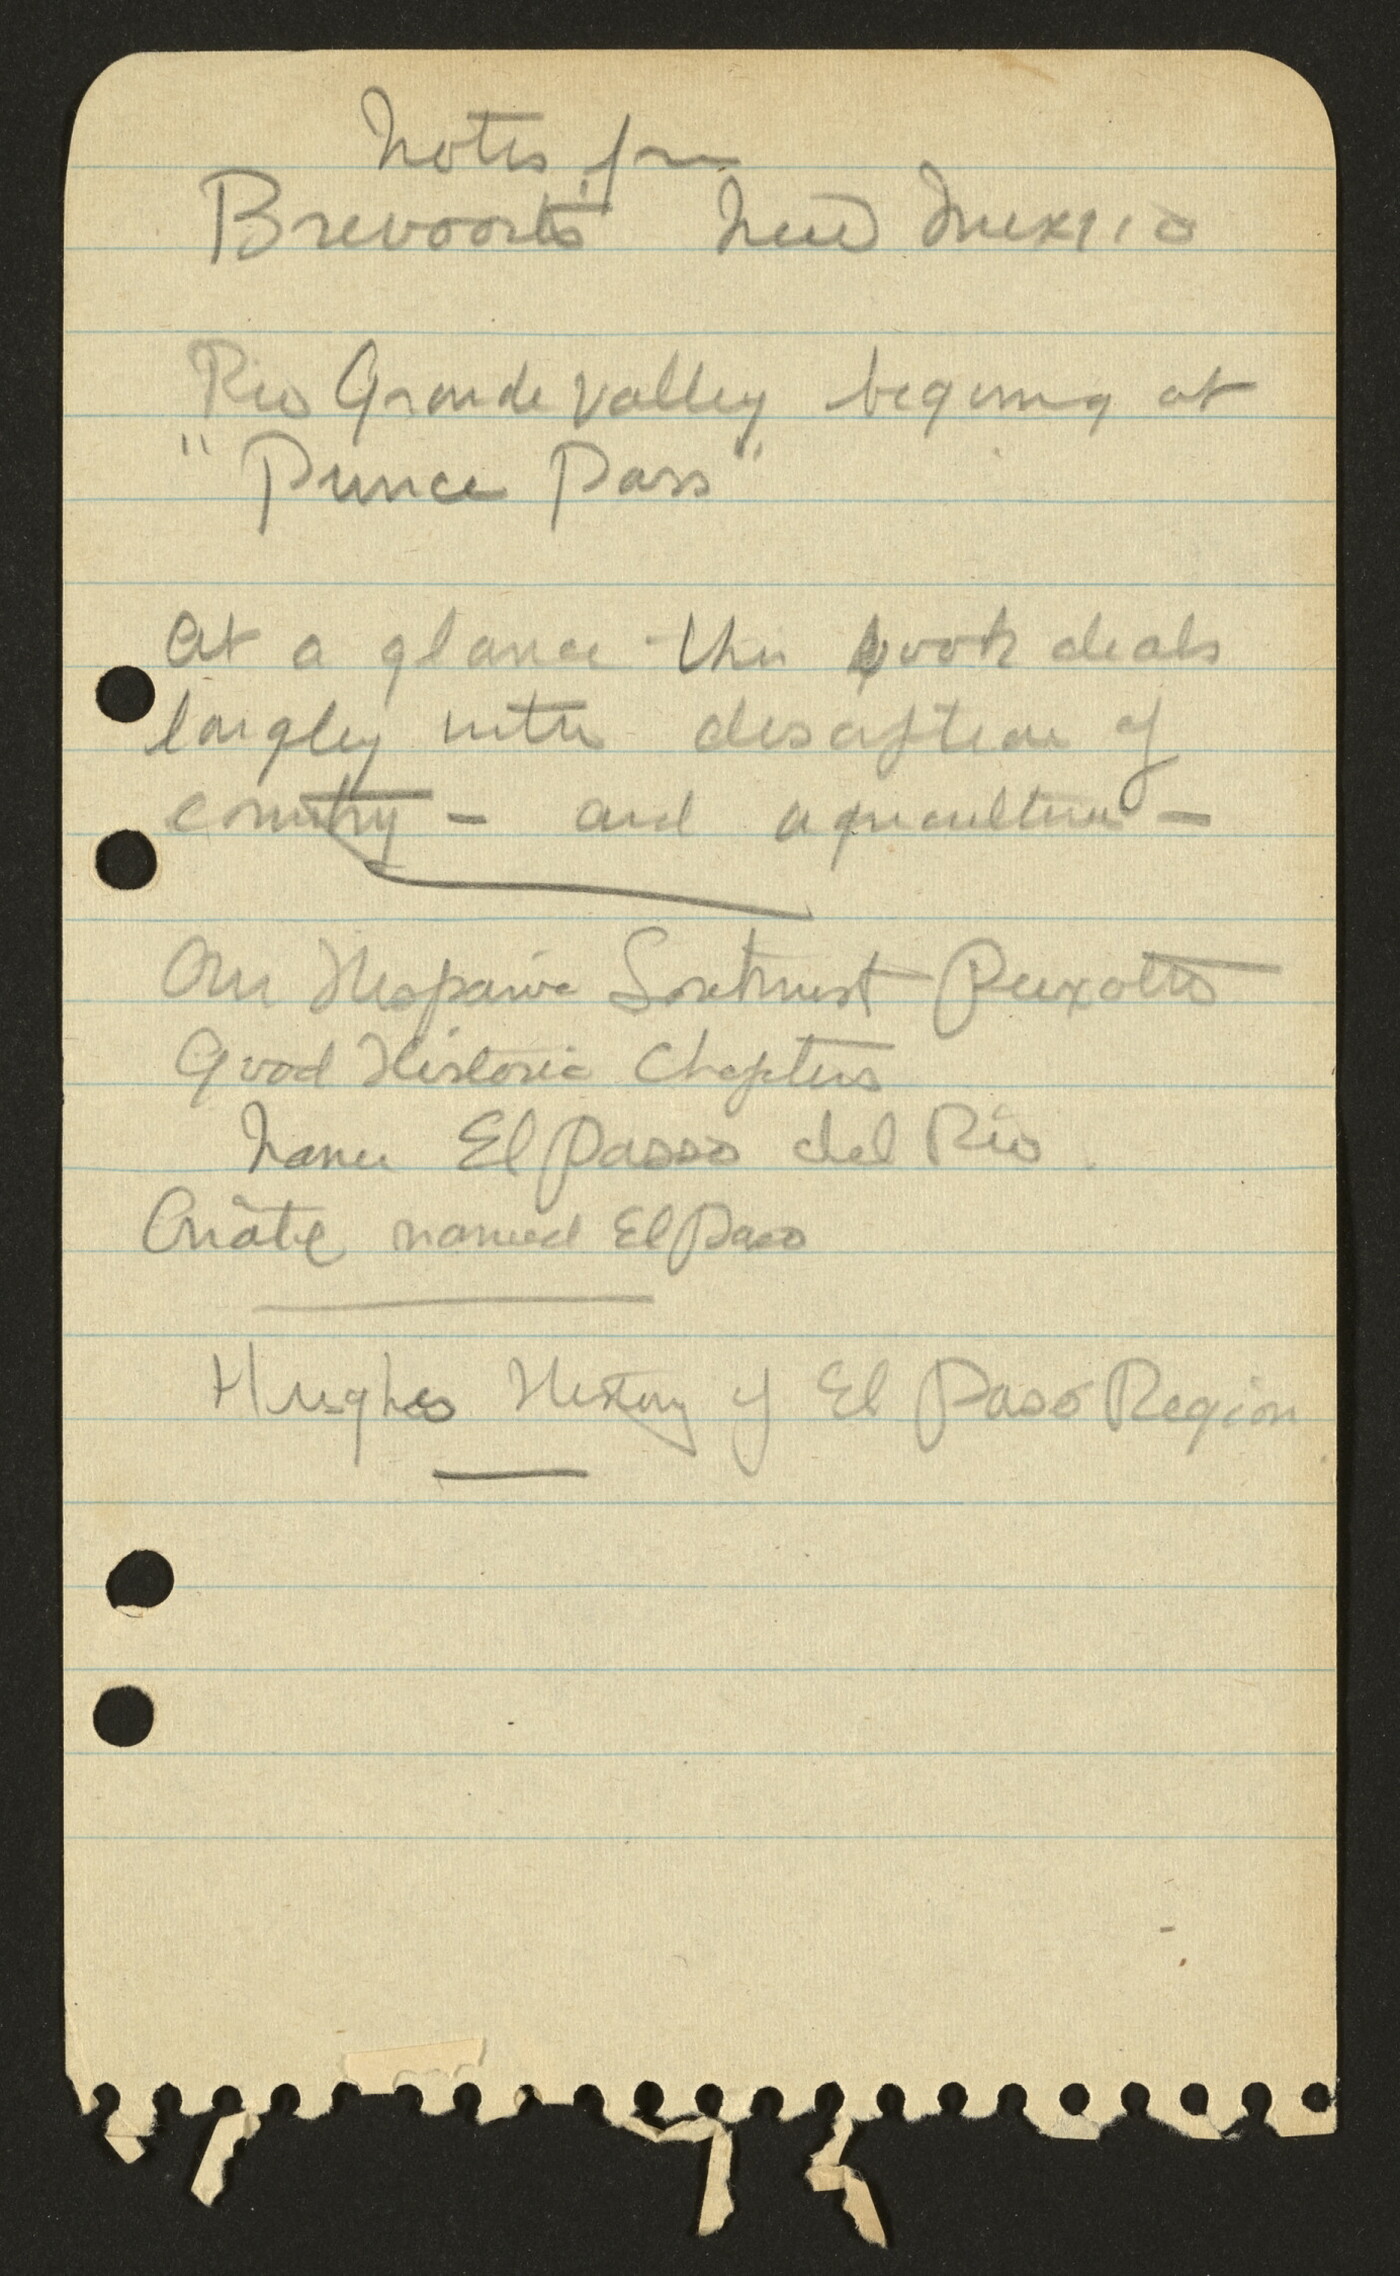 Notes from
Brevoort's New Mexico
Rio Grande Valley begining at
"Punce Pass"
At a glance this book deals
largley with description of
country - and agriculture -
Our Hispanic Southwest Peixotto
Good Historic Chapters
Name El Passo del Rio.
Oñate named El Paso
Hughes History of El Paso Region